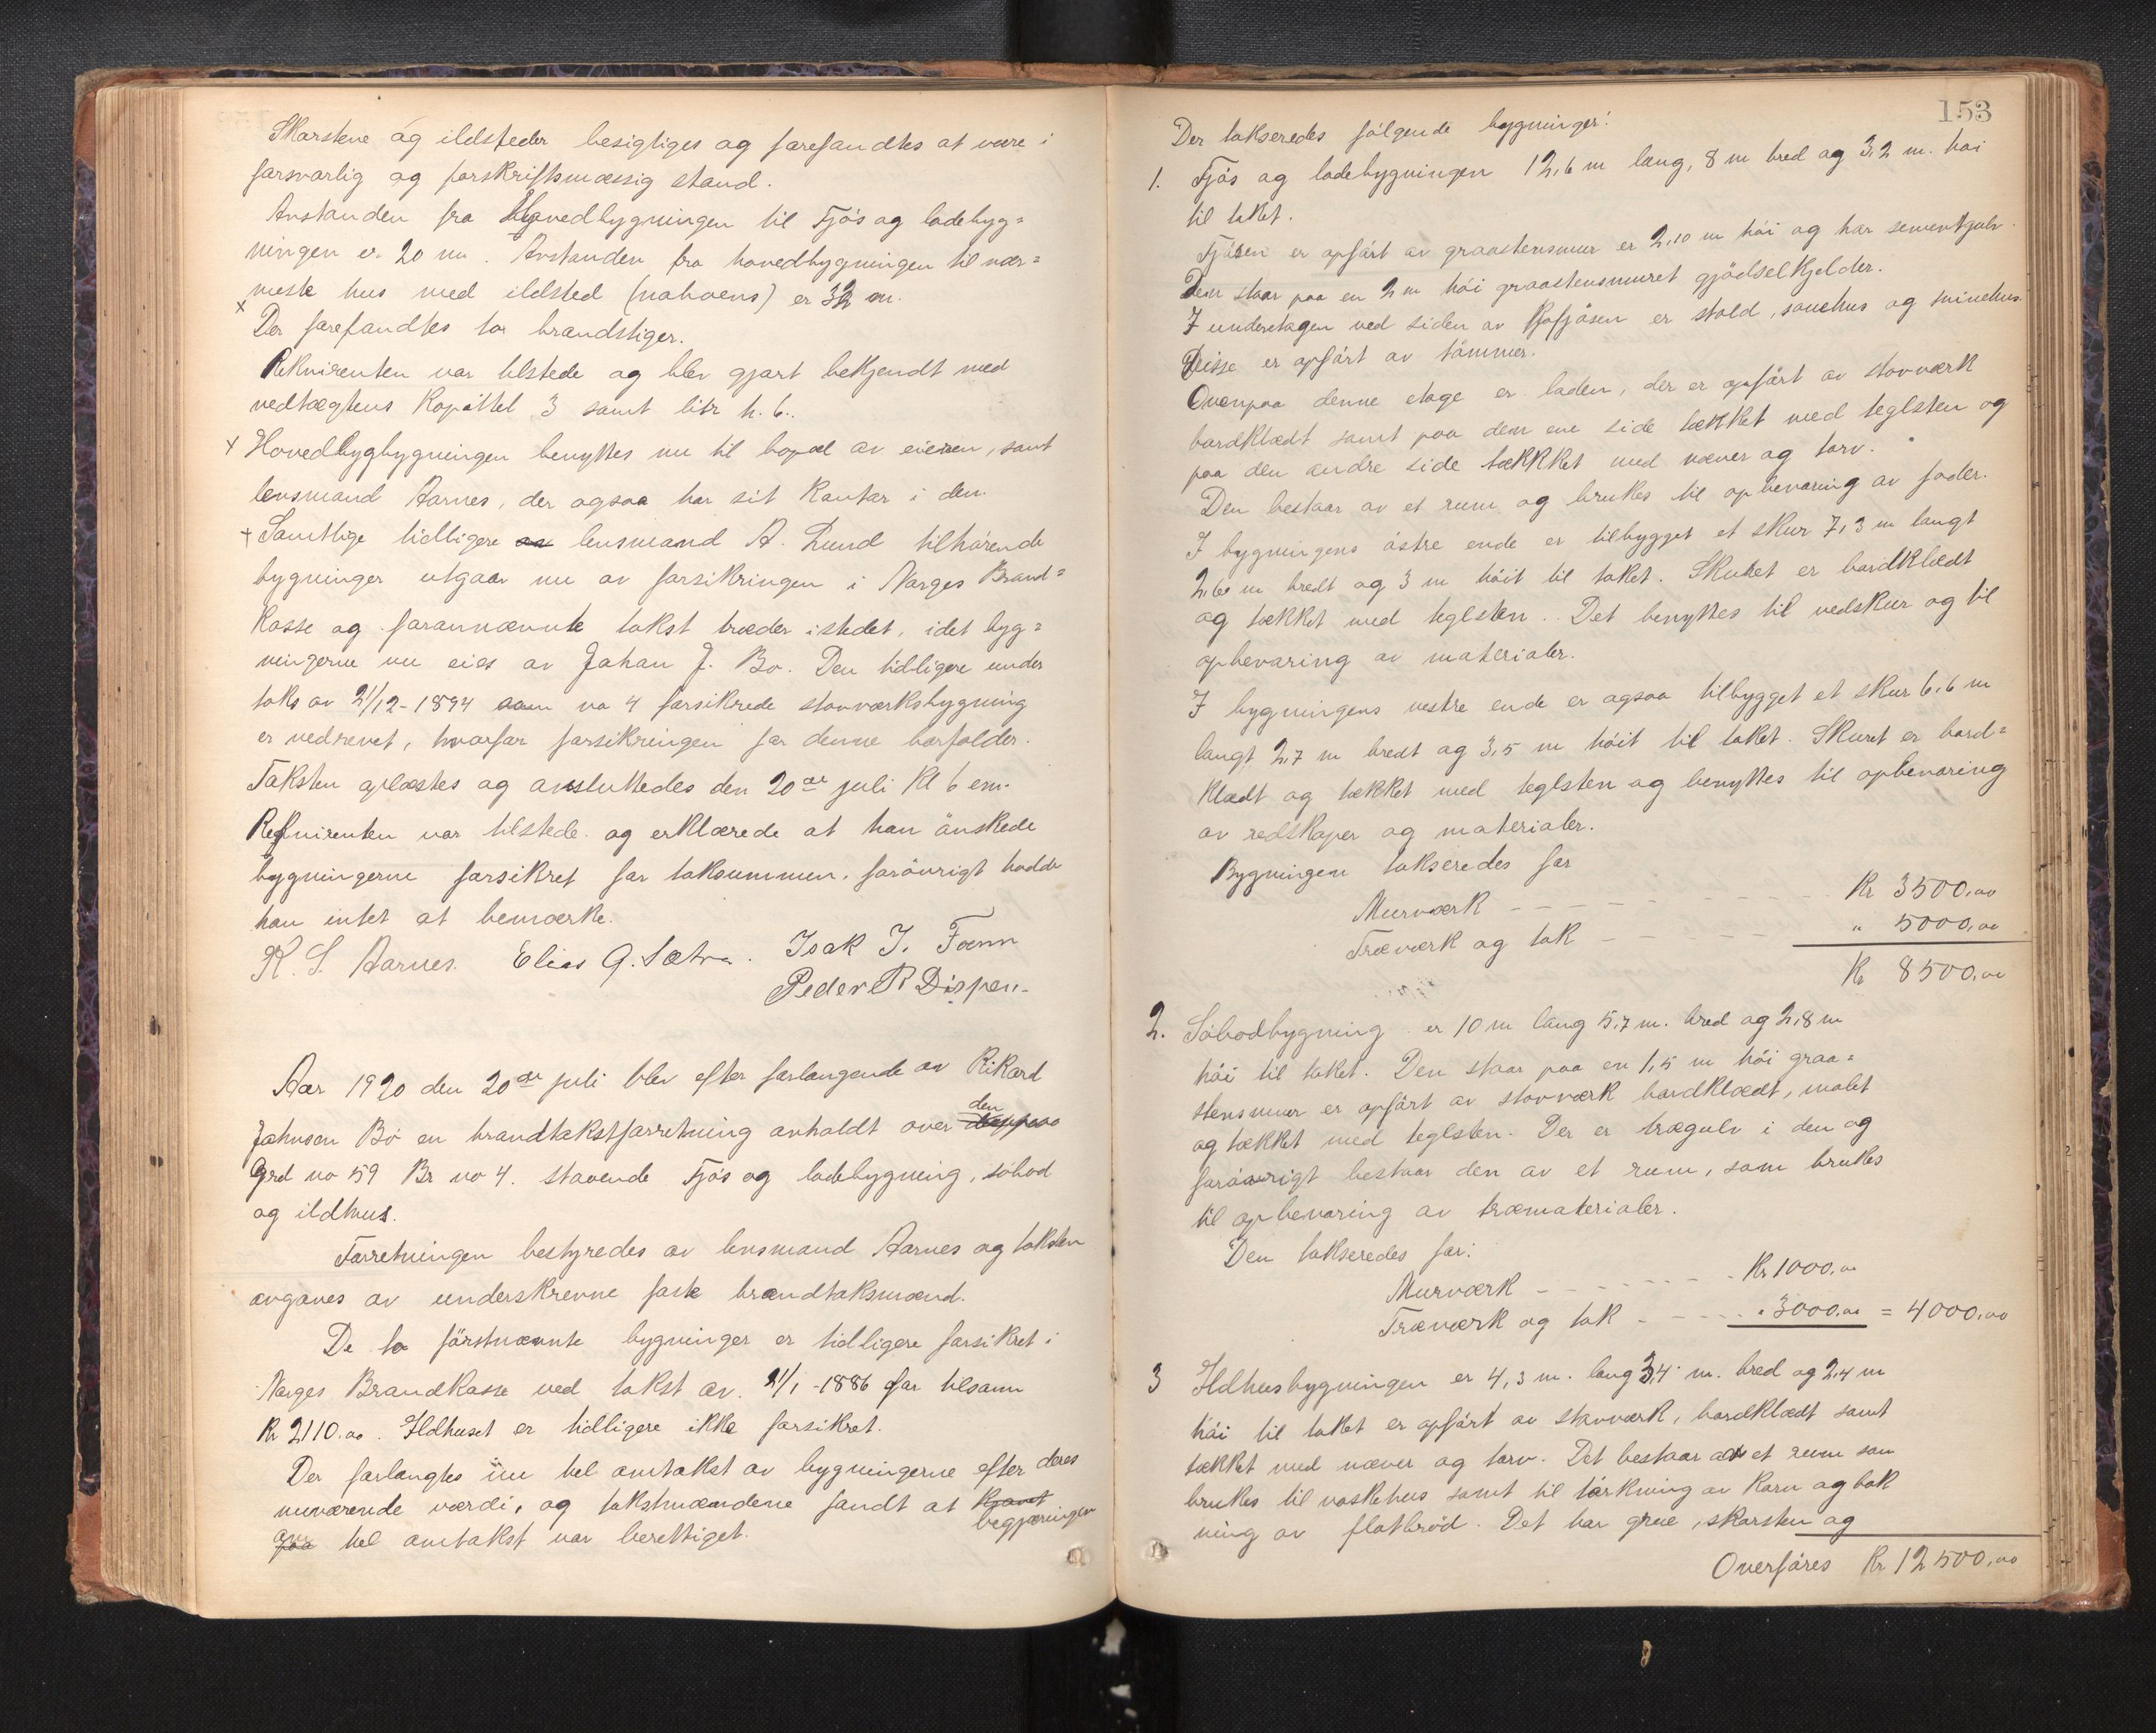 Skorstene og ildsteder besigtiges og forefandtes at være i
forsvarlig og forskriftsmæssig stand.
Avstanden fra Hovedbygningen til Fjös og ladebyg=
ningen er 20 m. Avstanden fra hovedbygningen til nær=
meste hus med ildsted (naboens) er 32 m.
x Der forefandtes to brandstiger.
Rekvirenten var tilstede og blev gjort bekjendt med
vedtægtens Kapittel 3 samt litr h. 6..
x Hovedbygbygningen benyttes nu til bopæl av eieren, samt
lensmand Aarnes, der ogsaa har sit Kontor i den.
+ Samtlige tidligere lensmand A. Lund tilhörende
bygninger utgaar nu av forsikringen i Norges Brand=
kasse og forannævnte takst træder istedet, idet byg=
ningerne nu eies av Johan J. Bø. Den tidligere under
taks av 21/12-1894 som no 4 forsikrede stovværksbygning
er nedrevet, hvorfor forsikringen for denne borfalder.
Taksten oplæstes og avsluttedes den 20de juli Kl 6 em.
Rekvirenten var tilstede og erklærede at han önskede
bygningerne forsikret for taksummen, forövrigt hadde
han intet at bemærke.
K. S. Aarnes. Elias G. Sætra. Isak J. Fonn
Peder R Dispen.
Aar 1920 den 20de juli blev efter forlangende av Rikard
Johnson Bö en brandtakstforretning avholdt over den
Grd no 59 Br no 4. staaende Fjös og ladebygning, söbod
og ildhus.
Forretningen bestyredes av lensmand Aarnes og taksten
avgaves av underskrevne faste brandtaksmænd.
De to förstnævnte bygninger er tidligere forsikret i
Norges Brandkasse ved takst av 21/1-1886 for tilsamn
Kr 2110.00. Ildhuset er tidligere ikke forsikret.
Der forlangtes nu hel omtakst av bygningerne efter deres
nuværende værdi, og takstmændene fandt at Kravet begjæringen
om paa hel omtakst var berettiget.
153
Der takseredes fölgende bygninger:
1. Fjös og ladebygningen 12,6 m lang, 8 m bred og 3,2 m. höi
til taket.
Fjösen er opfört av graastensmur er 2,10 m höi og har sementgulv.
Den staar paa en 2 m höi graastensmuret gjödselkjelder.
I underetagen ved siden av Kofjösen er stald, sauehus og svinehus.
Disse er opfört av tömmer.
Ovenpaa denne etage er laden, der er opfört av stovværk
bordklædt samt paa den ene side tækket med teglsten og
paa den andre side tækkket med næver og torv.
Den bestaar av et rum og brukes til opbevaring av foder.
I bygningens östre ende er tilbygget et skur 7,3 m langt
2,60 m bredt og 3 m höit til taket. Skuret er bordklædt
og tækket med teglsten. Det benyttes til vedskur og til
opbevaring av materialer.
I bygningens vestre ende er ogsaa tilbygget et skur 6,6 m
langt 2,7 m bredt og 3,5 m höit til taket. Skuret er bord=
klædt og tækket med teglsten og benyttes til opbevaring
av redskaper og materialer.
Bygningen takseredes for
Murværk - - - - - - Kr 3500,00
Træværk og tak - - - " 5000,00
Kr 8500,00
2. Söbodbygning er 10 m lang 5,7 m. bred og 2,8 m
höi til taket. Den staar paa en 1,5 m höi graa=
stensmur er opfört av stovværk bordklædt, malet
og tækket med teglsten. Der er trægulv i den og
forövrigt bestaar den av et rum, som brukes
til opbevaring av træmaterialer.
Den takseredes for:
Murværk - - - - - - Kr 1000,00
Træværk og tak - - - - " 3000,00 = 4000,00
3 Ildhusbygningen er 4,3 m. lang 3,4 m. bred og 2,4 m
höi til taket er opfört av stovværk, bordklædt samt
tækket med næver og torv. Det bestaar av et rum som
brukes til vaskehus samt til törkning av korn og bak
ning av flatbröd. Det har grue, skorsten og
Overföres Kr 12500,00